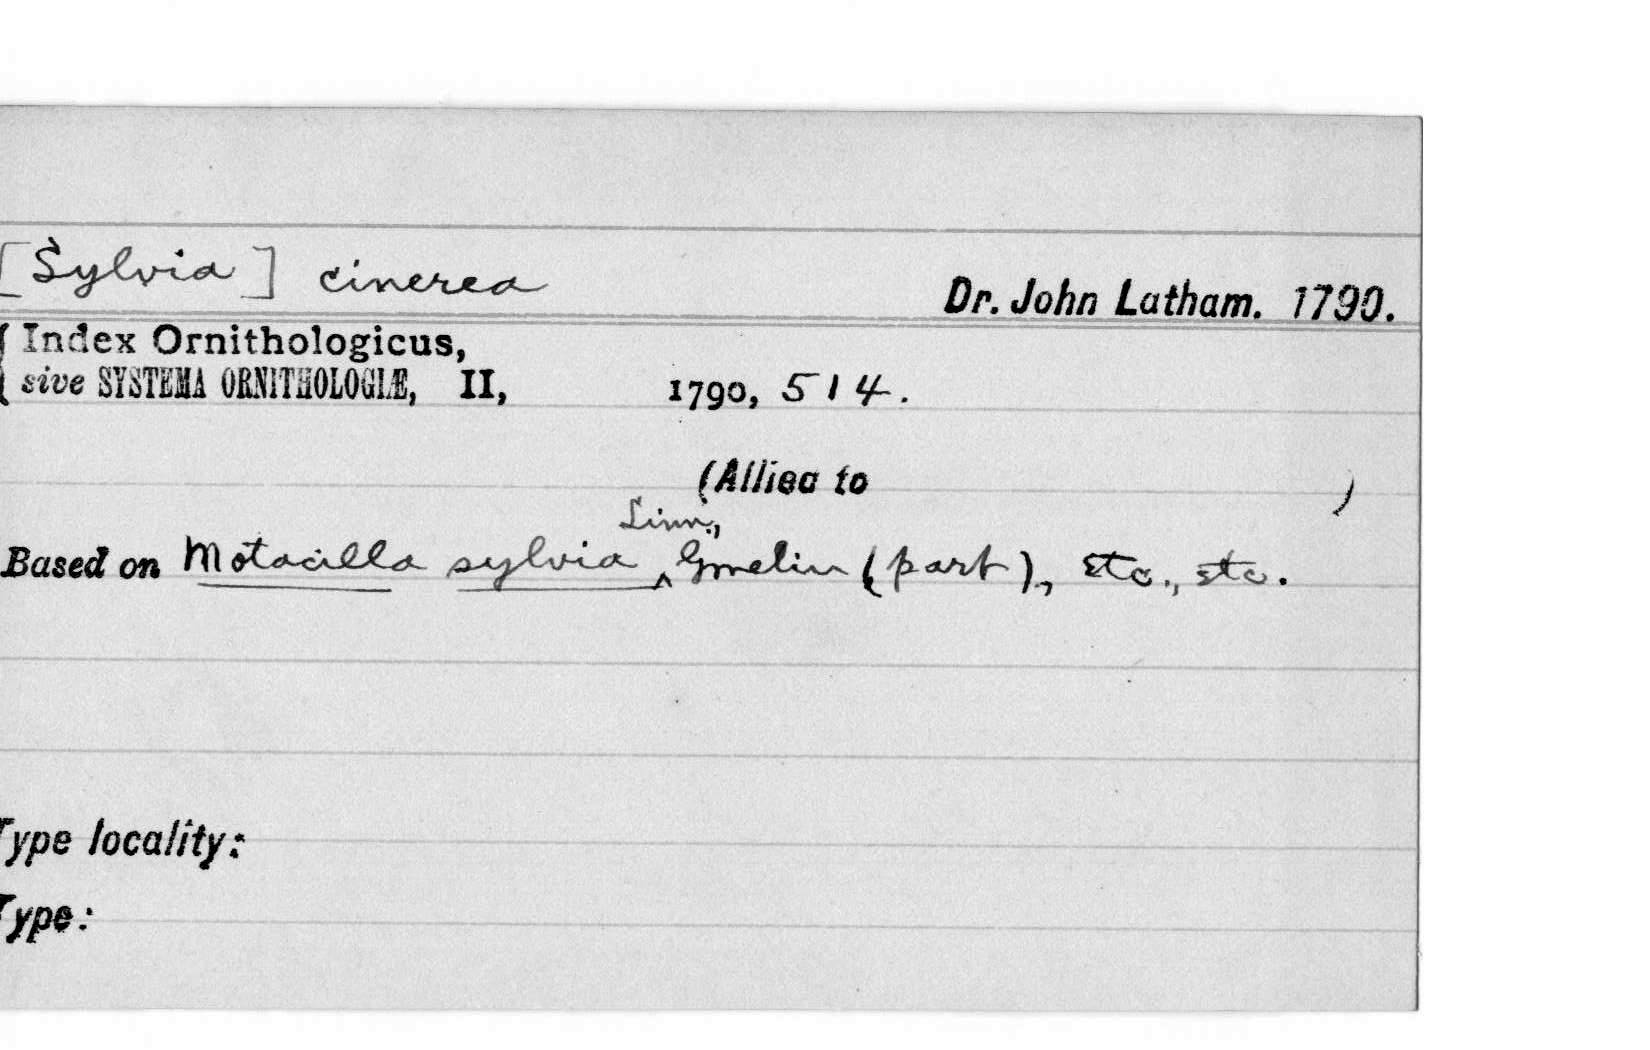 [Sylvia] cinerea
Dr. John Latham. 1790.
Index Ornithologicus,
sive SYSTEMA ORNITHOLOGIÆ, II, 1790, 514.
(Allied to )
Linn.,
Based on Motacilla sylvia ^ Gmelin (part)., etc., etc.
Type locality:
Type: